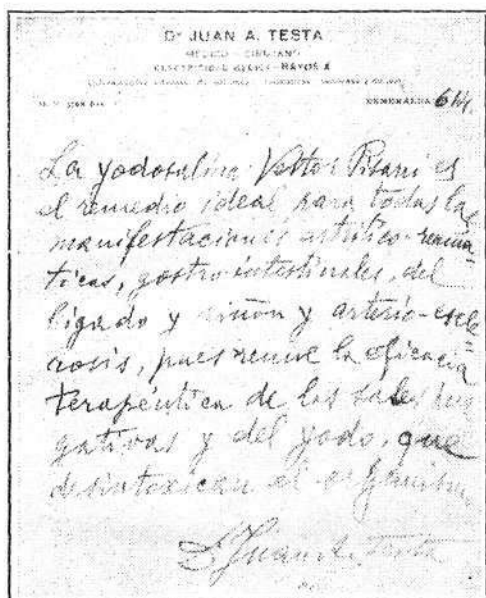 Dr JUAN A. TESTA
MÉDICO - CIRUJANO
ELECTRICIDAD MÉDICA - RAYOS X
ESMERALDA 614
La yodosalina Vettor Pisani es
el remedio ideal para todas las
manifestaciones artrítico-reumá-
ticas, gastro-intestinales, del
hígado y riñon y arterio-escle-
rosis, pues reune la eficacia
terapéutica de las sales pur
gativas y del yodo, que
desintoxican el organismo
Dr Juan A. Testa